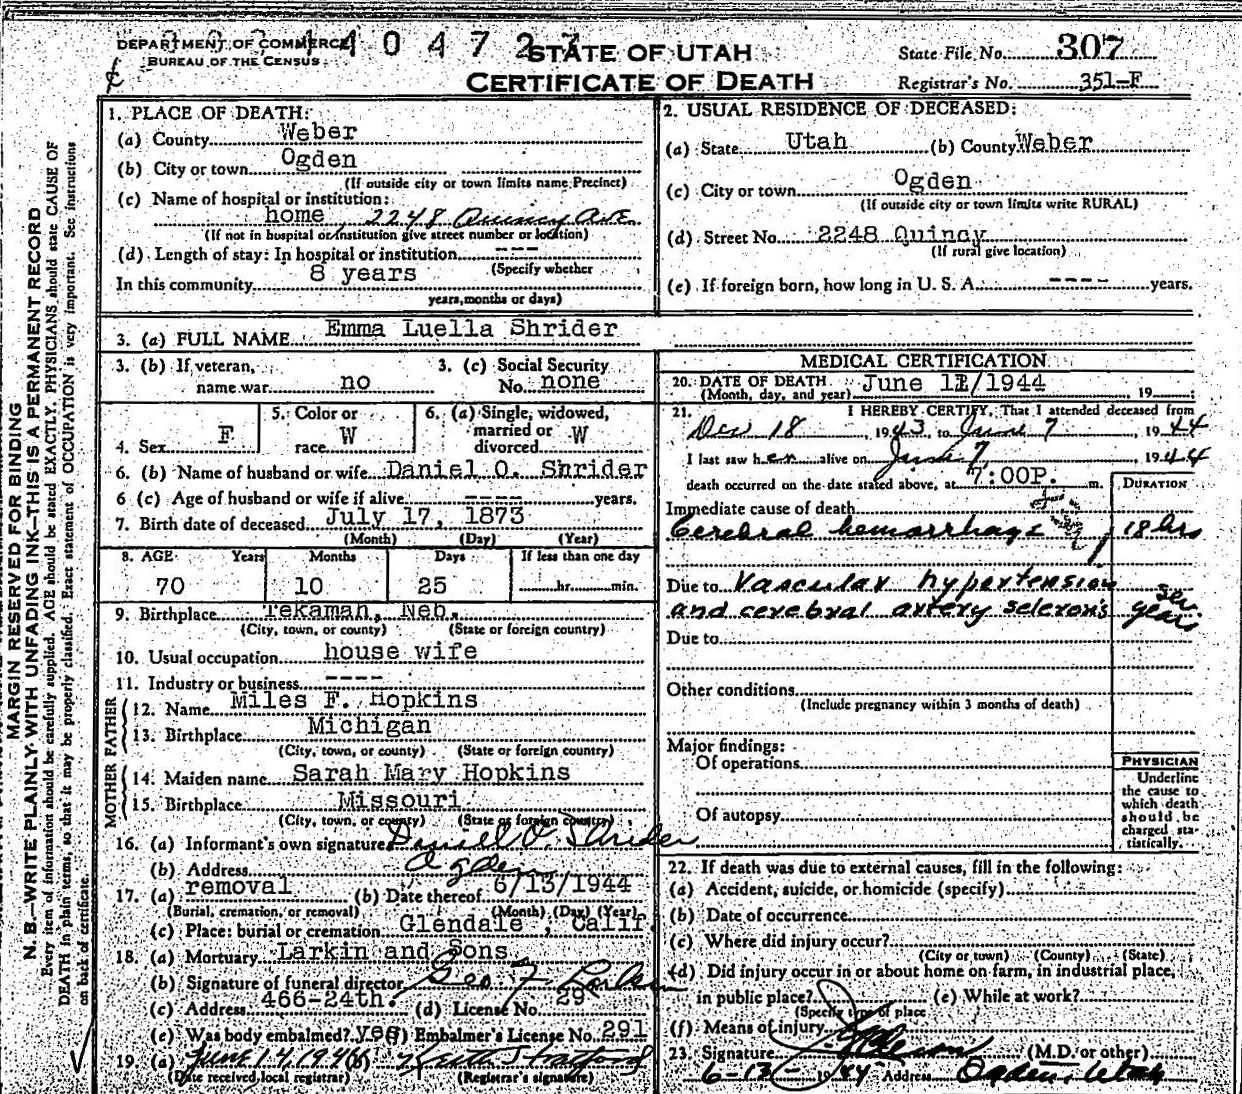 DEPARTMENT OF COMMERCE
BUREAU OF THE CENSUS
140472
STATE OF UTAH
CERTIFICATE OF DEATH
State File No. 307
Registrar's No. 351-F
MARGIN RESERVED FOR BINDING
N. B.—WRITE PLAINLY WITH UNFADING INK—THIS IS A PERMANENT RECORD
Every item of information should be carefully supplied. AGE should be stated EXACTLY. PHYSICIANS should state CAUSE OF
DEATH in plain terms, so that it may be properly classified. Exact statement of OCCUPATION is very important. See instructions
on back of certificate.
1. PLACE OF DEATH:
(a) County Weber
(b) City or town Ogden
(If outside city or town limits name Precinct)
(c) Name of hospital or institution:
home 2248 Quincy Ave
(If not in hospital or institution give street number or location)
(d) Length of stay: In hospital or institution ---
(Specify whether
In this community 8 years
years, months or days)
2. USUAL RESIDENCE OF DECEASED:
(a) State Utah (b) County Weber
(c) City or town Ogden
(If outside city or town limits write RURAL)
(d) Street No. 2248 Quincy
(If rural give location)
(e) If foreign born, how long in U. S. A. ---- years.
3. (a) FULL NAME Emma Luella Shrider
3. (b) If veteran,
name war no
3. (c) Social Security
No. none
4. Sex F
5. Color or
race W
6. (a) Single, widowed,
married or
divorced W
6. (b) Name of husband or wife Daniel O. Shrider
6 (c) Age of husband or wife if alive ---- years.
7. Birth date of deceased July 17, 1873
(Month) (Day) (Year)
8. AGE Years Months Days If less than one day
70 10 25 hr. min.
9. Birthplace Tekamah, Neb.
(City, town, or county) (State or foreign country)
10. Usual occupation house wife
11. Industry or business ----
FATHER
12. Name Miles F. Hopkins
13. Birthplace Michigan
(City, town, or county) (State or foreign country)
MOTHER
14. Maiden name Sarah Mary Hopkins
15. Birthplace Missouri
(City, town, or county) (State or foreign country)
16. (a) Informant's own signature Daniel O Shrider
(b) Address Ogden
17. (a) removal (b) Date thereof 6/13/1944
(Burial, cremation, or removal) (Month) (Day) (Year)
(c) Place: burial or cremation Glendale, Calif.
18. (a) Mortuary Larkin and Sons
(b) Signature of funeral director Geo. F Larkin
(c) Address 466-24th. (d) License No. 29
(e) Was body embalmed? yes (f) Embalmer's License No. 291
19 (a) June 14, 1944 (b) Keith Stratford
(Date received local registrar) (Registrar's signature)
MEDICAL CERTIFICATION
20. DATE OF DEATH June 11/1944 19
(Month, day, and year)
21. I HEREBY CERTIFY, That I attended deceased from
Dec 18, 1943, to June 7, 1944
I last saw her alive on June 7, 1944
death occurred on the date stated above, at 7:00P. m.
DURATION
Immediate cause of death
Cerebral hemorrhage 18 hrs
Due to Vascular hypertension
and cerebral artery sclerosis sev. years
Due to
Other conditions
(Include pregnancy within 3 months of death)
Major findings:
Of operations
Of autopsy
PHYSICIAN
Underline
the cause to
which death
should be
charged sta-
tistically.
22. If death was due to external causes, fill in the following:
(a) Accident, suicide, or homicide (specify)
(b) Date of occurrence
(c) Where did injury occur?
(City or town) (County) (State)
(d) Did injury occur in or about home on farm, in industrial place,
in public place? (e) While at work?
(Specify type of place
(f) Means of injury
23. Signature (M.D. or other)
6-13-1944 Address Ogden, Utah